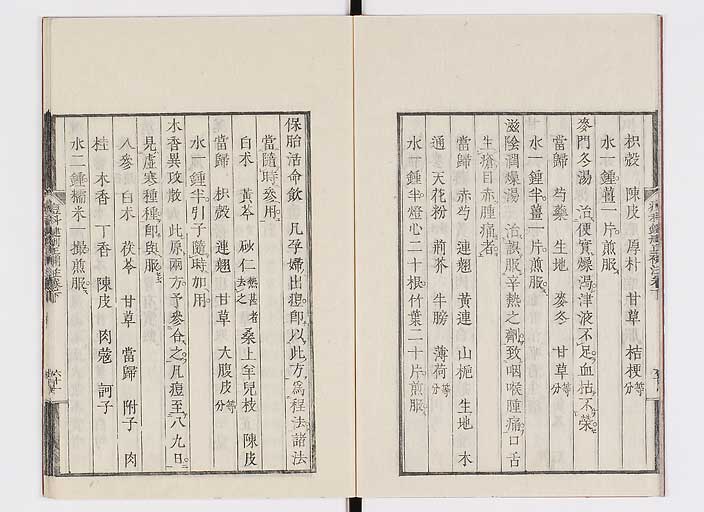 枳殼 陳皮 厚朴 甘草 桔梗等分
水一鍾薑一片煎服
麥門冬湯 治便實燥渴津液不足血枯不榮
當歸 芍藥 生地 麥冬 甘草等分
水一鍾半薑一片煎服
滋陰潤燥湯 治誤服辛熱之劑致咽喉腫痛口舌
生瘡目赤腫痛者
當歸 赤芍 連翹 黃連 山梔 生地 木
通 天花粉 荊芥 牛膀 薄荷等分
水一鍾半燈心二十根竹葉二十片煎服
保胎活命飲 凡孕婦出痘卽以此方爲程法諸法
當隨時參用
白朮 黃芩 砂仁熱甚者去之 桑上羊兒枝 陳皮
當歸 枳殼 連翹 甘草 大腹皮等分
水一鍾半引子隨時加用
木香異攻散 此原兩方予參合之凡痘至八九日
見虛寒種種卽與服
人參 白朮 茯苓 甘草 當歸 附子 肉
桂 木香 丁香 陳皮 肉蔻 訶子
水二鍾糯米一撮煎服
六十一